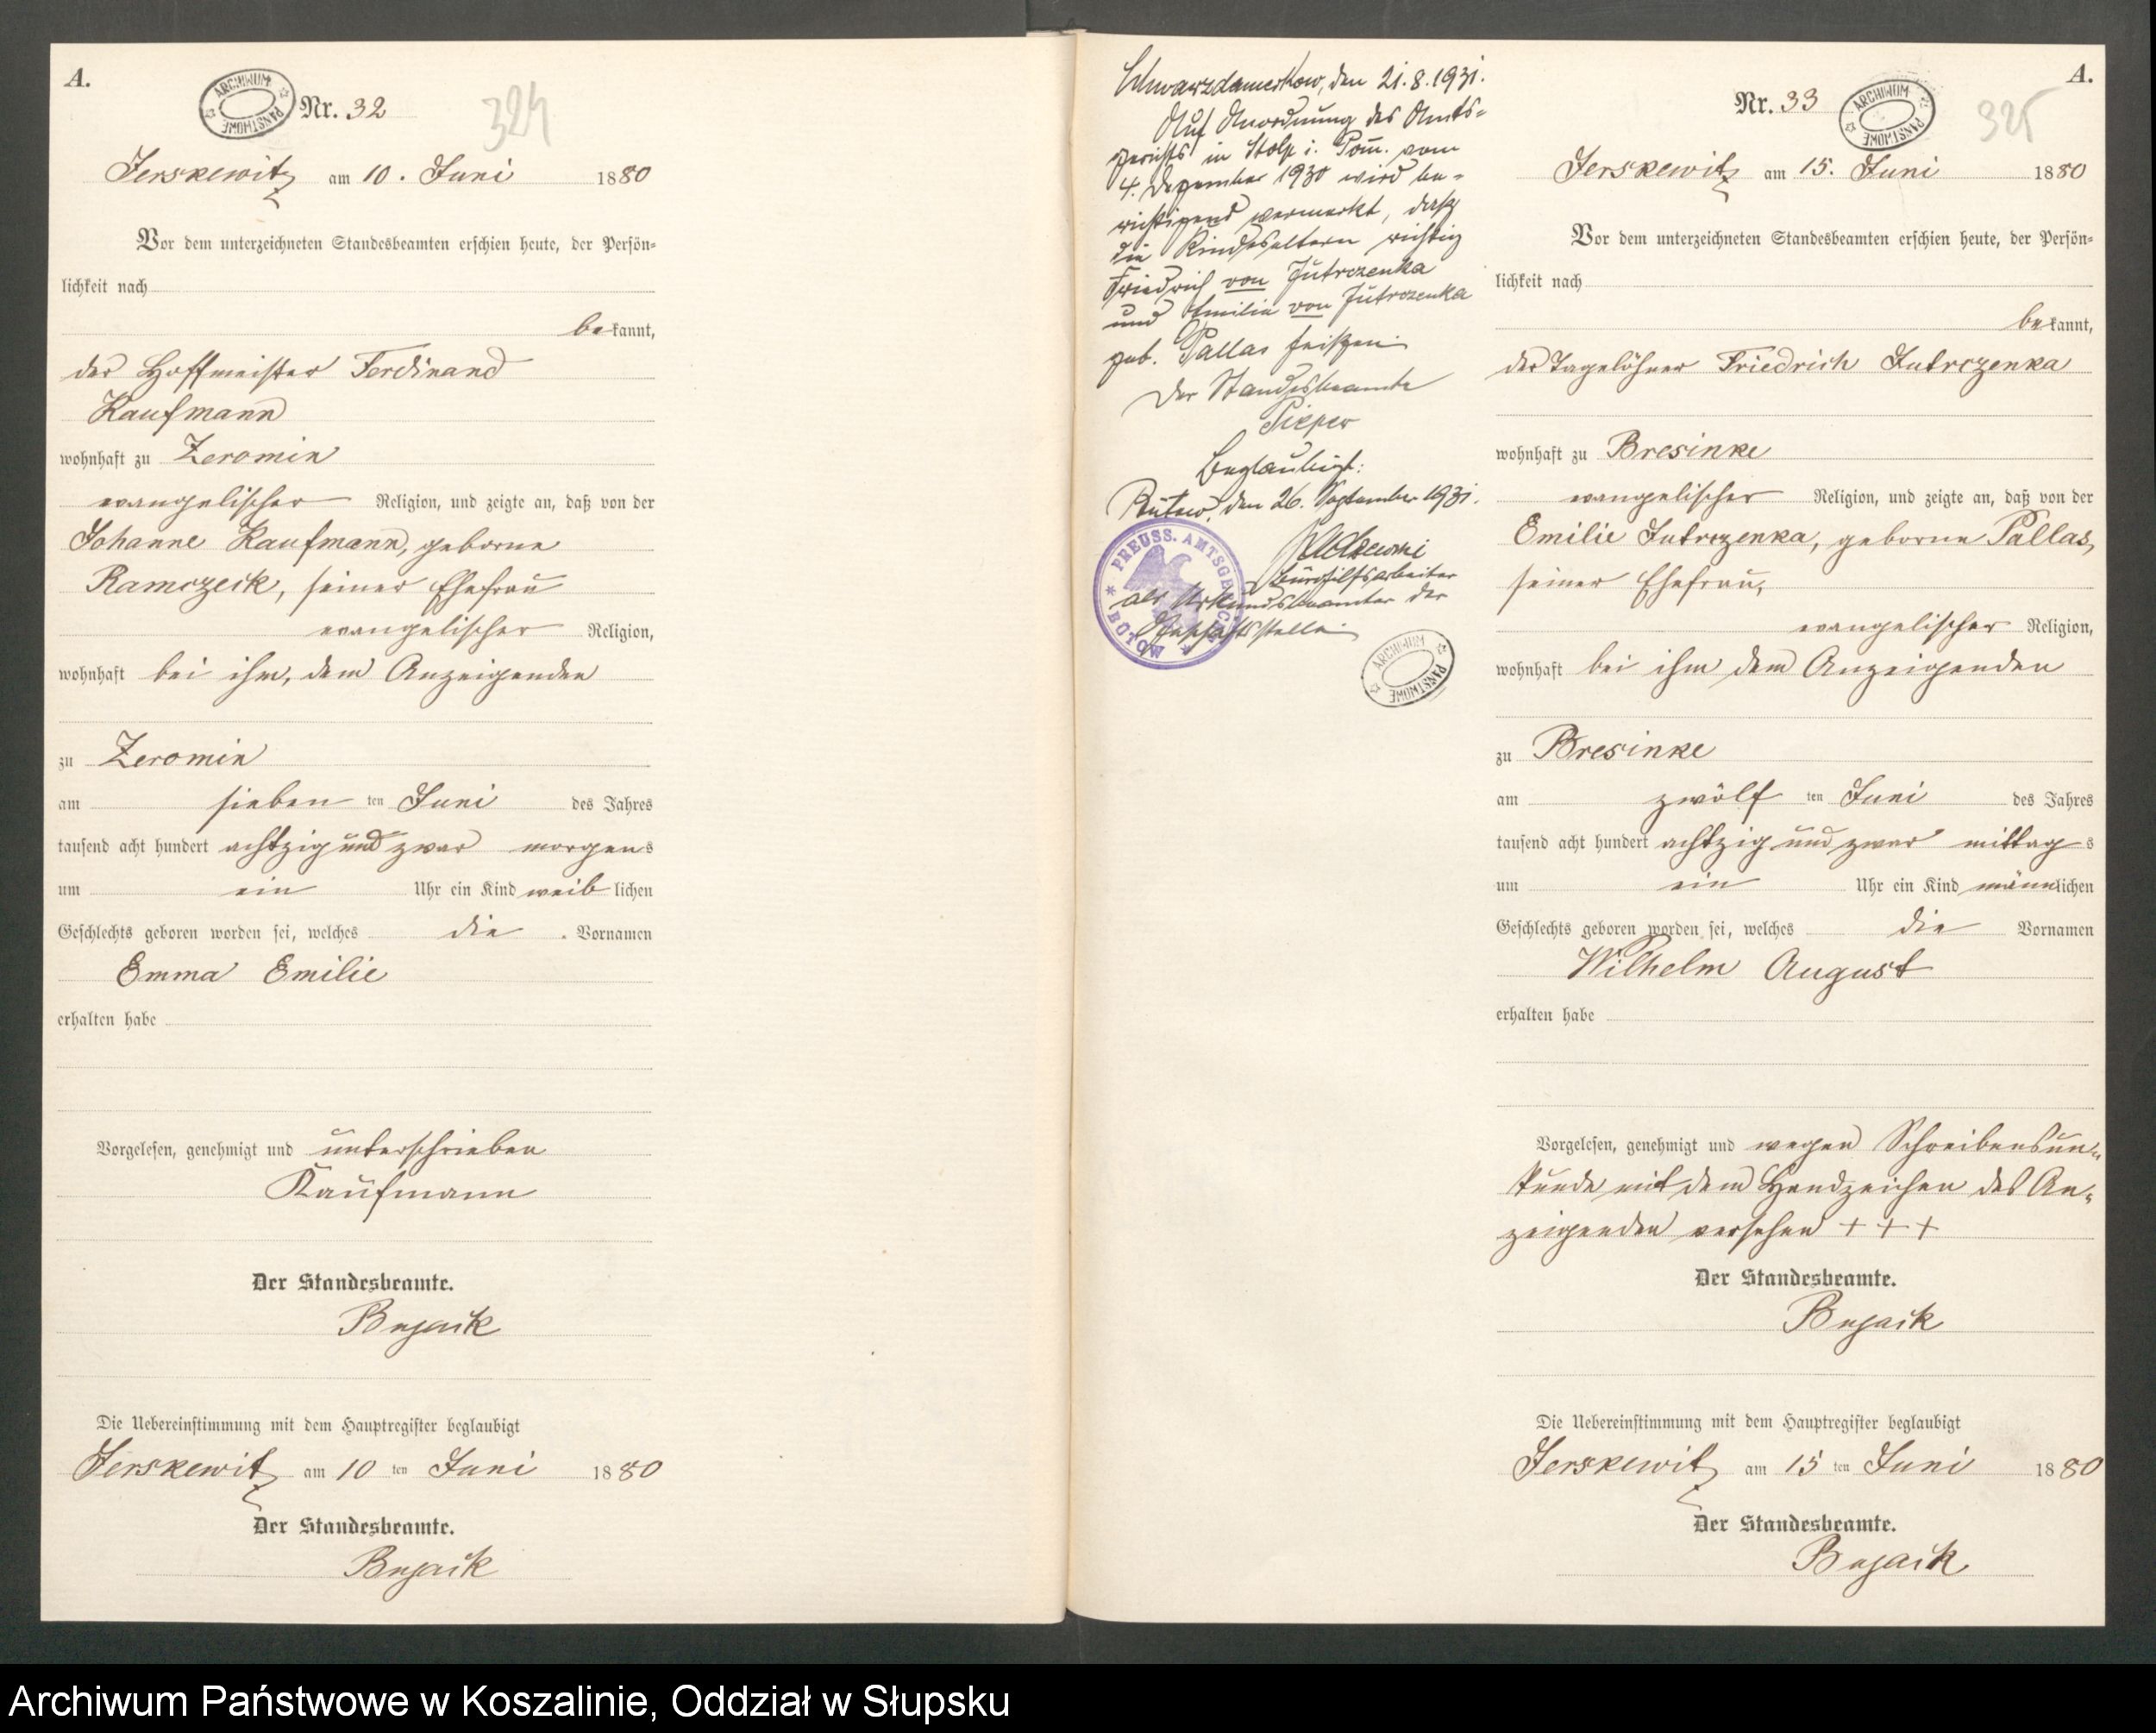 A.
ARCHIWUM PAŃSTWOWE
Nr. 32
324
Jerskewitz am 10. Juni 1880
Vor dem unterzeichneten Standesbeamten erschien heute, der Persön=
lichkeit nach
be kannt,
der Hoffmeister Ferdinand
Kaufmann
wohnhaft zu Zeromin
evangelischer Religion, und zeigte an, daß von der
Johanne Kaufmann, geborne
Ramczeck, seiner Ehefrau
evangelischer Religion,
wohnhaft bei ihm, dem Anzeigenden
zu Zeromin
am sieben ten Juni des Jahres
tausend acht hundert achtzig und zwar morgens
um ein Uhr ein Kind weib lichen
Geschlechts geboren worden sei, welches die Vornamen
Emma Emilie
erhalten habe
Vorgelesen, genehmigt und unterschrieben
Kaufmann
Der Standesbeamte.
Bujack
Die Uebereinstimmung mit dem Hauptregister beglaubigt
Jerskewitz am 10 ten Juni 1880
Der Standesbeamte.
Bujack
Schwarzdamerkow, den 21.8.1931.
Auf Anordnung des Amts=
gerichts in Stolp i. Pom. vom
4. Dezember 1930 wird be=
richtigend vermerkt, daß
die Kindeseltern richtig
Friedrich von Jutrczenka
und Emilie von Jutrozenka
geb. Pallas heißen.
Der Standesbeamte
Pieper
Beglaubigt:
Bütow, den 26. September 1931.
Bürohilfsarbeiter
als Urkundsbeamter der
Geschäftsstelle
PREUSS. AMTSGERICHT BÜTOW
ARCHIWUM PAŃSTWOWE
A.
Nr. 33
ARCHIWUM PAŃSTWOWE
325
Jerskewitz am 15. Juni 1880
Vor dem unterzeichneten Standesbeamten erschien heute, der Persön=
lichkeit nach
be kannt,
der Tagelöhner Friedrich Jutrczenka
wohnhaft zu Bresinke
evangelischer Religion, und zeigte an, daß von der
Emilie Jutrczenka, geborne Pallas,
seiner Ehefrau,
evangelischer Religion,
wohnhaft bei ihm dem Anzeigenden
zu Bresinke
am zwölf ten Juni des Jahres
tausend acht hundert achtzig und zwar mittag s
um ein Uhr ein Kind männlichen
Geschlechts geboren worden sei, welches die Vornamen
Wilhelm August
erhalten habe
Vorgelesen, genehmigt und wegen Schreibensun=
kunde mit dem Handzeichen des An=
zeigenden versehen + + +
Der Standesbeamte.
Bujack
Die Uebereinstimmung mit dem Hauptregister beglaubigt
Jerskewitz am 15 ten Juni 1880
Der Standesbeamte.
Bujack
Archiwum Państwowe w Koszalinie, Oddział w Słupsku